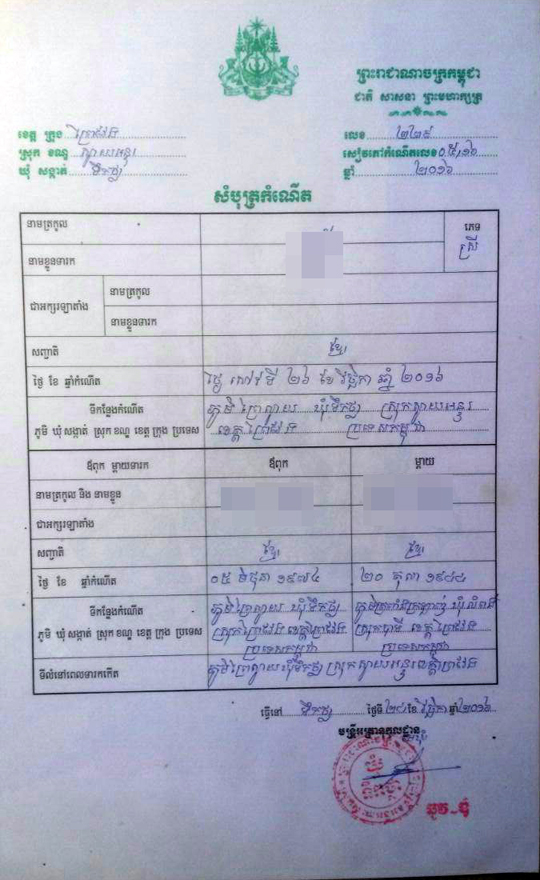 ព្រះរាជាណាចក្រកម្ពុជា
ជាតិ សាសនា ព្រះមហាក្សត្រ
ខេត្ត ក្រុង ព្រៃវែង
ស្រុក ខណ្ឌ ស្វាយអន្ទរ
ឃុំ សង្កាត់ ទឹកថ្លា
លេខ ២២៩
សៀវភៅកំណើតលេខ ០៥/១៦
ឆ្នាំ ២០១៦
សំបុត្រកំណើត
នាមត្រកូល
ភេទ
ស្រី
នាមខ្លួនទារក
ជាអក្សរឡាតាំង
នាមត្រកូល
នាមខ្លួនទារក
សញ្ជាតិ ខ្មែរ
ថ្ងៃ ខែ ឆ្នាំកំណើត ថ្ងៃ សៅរ៍ ទី ២៦ ខែ វិច្ឆិកា ឆ្នាំ ២០១៦
ទីកន្លែងកំណើត ភូមិ ឃុំទឹកថ្លា ស្រុកស្វាយអន្ទរ
ភូមិ ឃុំ សង្កាត់ ស្រុក ខណ្ឌ ខេត្ត ក្រុង ប្រទេស ខេត្តព្រៃវែង ប្រទេសកម្ពុជា
ឪពុក ម្តាយទារក ឪពុក ម្តាយ
នាមត្រកូល និង នាមខ្លួន
ជាអក្សរឡាតាំង
សញ្ជាតិ ខ្មែរ ខ្មែរ
ថ្ងៃ ខែ ឆ្នាំកំណើត ០៥ មិថុនា ១៩៧៤ ២០ តុលា ១៩៨៤
ទីកន្លែងកំណើត ឃុំទឹកថ្លា
ភូមិ ឃុំ សង្កាត់ ស្រុក ខណ្ឌ ខេត្ត ក្រុង ប្រទេស ស្រុក ខេត្តព្រៃវែង ខេត្តព្រៃវែង
ប្រទេសកម្ពុជា ប្រទេសកម្ពុជា
ទីលំនៅពេលទារកកើត ឃុំទឹកថ្លា ស្រុកស្វាយអន្ទរ ខេត្តព្រៃវែង
ធ្វើនៅ ទឹកថ្លា ថ្ងៃទី ២៨ ខែ វិច្ឆិកា ឆ្នាំ ២០១៦
មន្ត្រីអត្រានុកូលដ្ឋាន
ឃុំ
ទឹកថ្លា